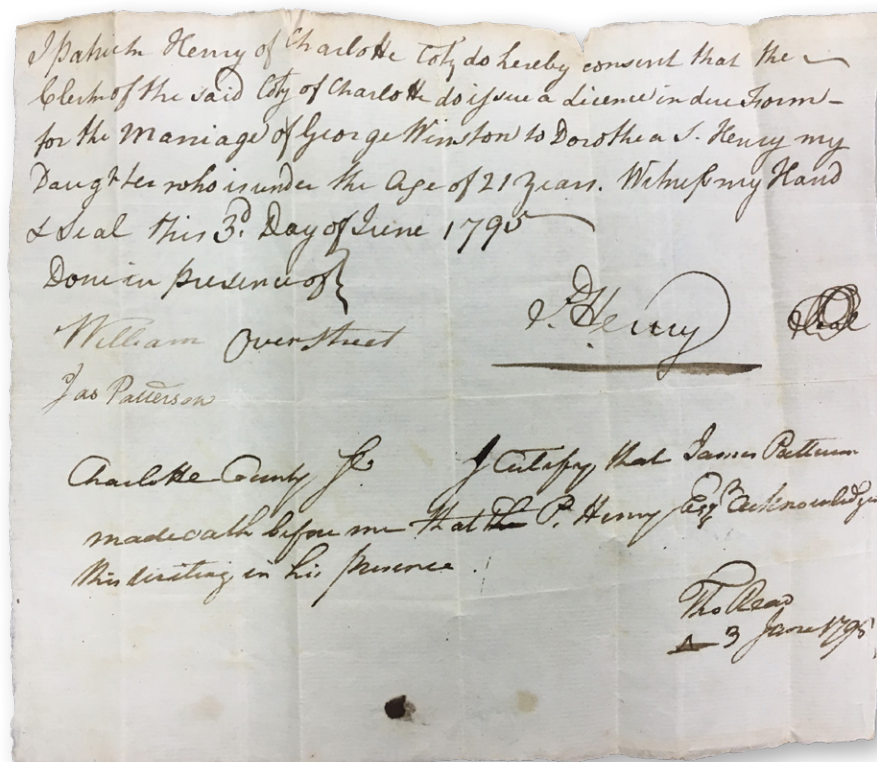 I Patrick Henry of Charlotte Coty do hereby consent that the
Clerk of the said Coty of Charlotte do issue a Licence in due Form
for the Marriage of George Winston to Dorothea S. Henry my
Daughter who is under the Age of 21 Years. Witness my Hand
& Seal this 3d. Day of June 1795
Done in presence of
P. Henry Seal
William Overstreet
Jas Patterson
Charlotte County Sc. I Certify that James Patterson
made oath before me that P. Henry Esqr Acknowledged
this writing in his presence.
Tho Read
3 June 1795